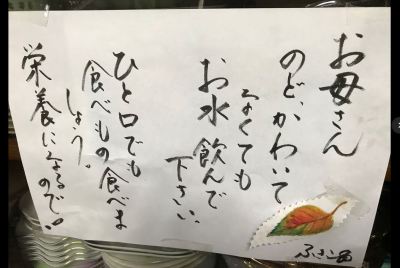 お母さん
のど、かわいて
なくても
お水飲んで
下さい、
ひと口でも
食べもの食べま
しょう。
栄養になる
ので!